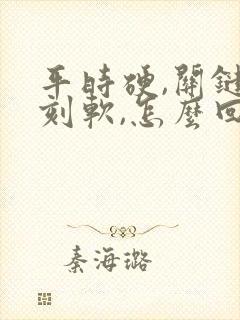 平時硬,關鍵
刻軟,怎麼回
秦海璐